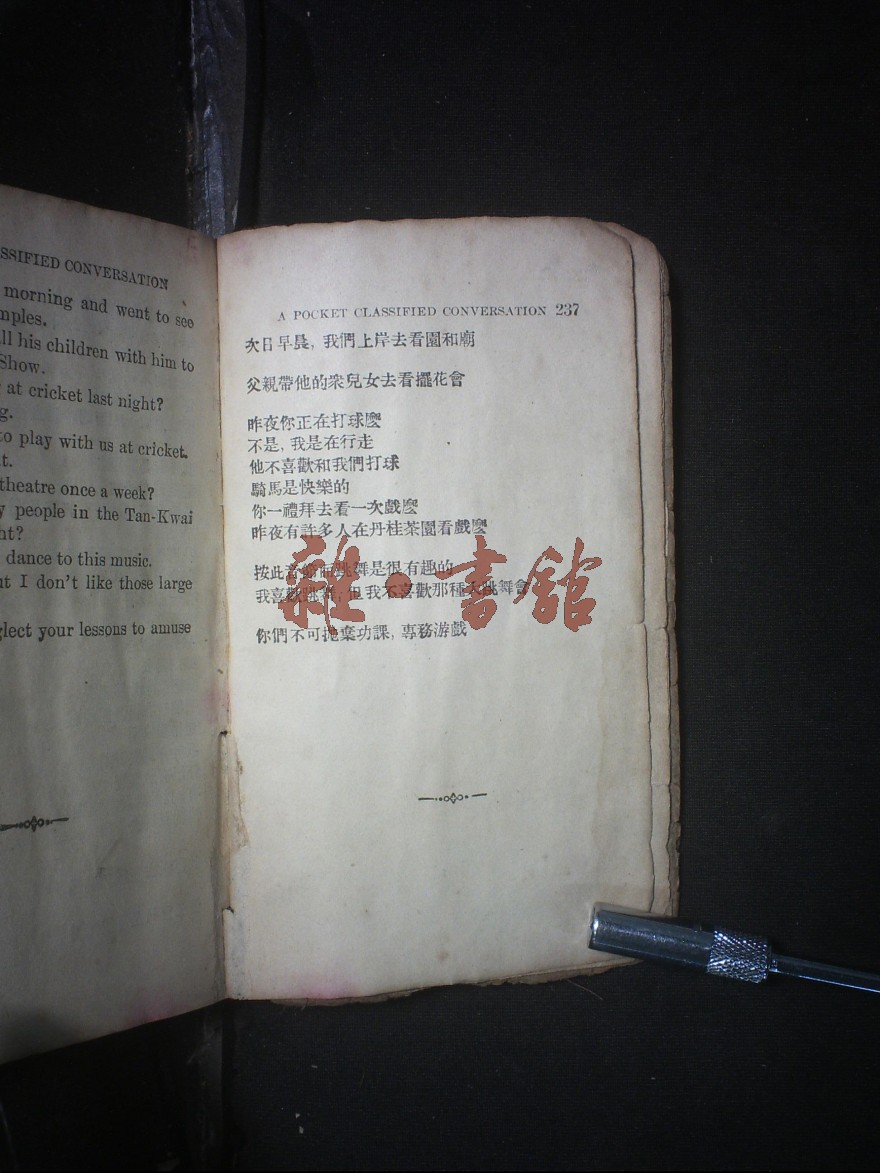 SSIFIED CONVERSATION
morning and went to see
mples.
ll his children with him to
Show.
at cricket last night?
g.
to play with us at cricket.
t.
theatre once a week?
y people in the Tan-Kwai
ht?
dance to this music.
t I don't like those large
glect your lessons to amuse
A POCKET CLASSIFIED CONVERSATION 237
次日早晨, 我們上岸去看園和廟
父親帶他的衆兒女去看擺花會
昨夜你正在打球麼
不是, 我是在行走
他不喜歡和我們打球
騎馬是快樂的
你一禮拜去看一次戲麼
昨夜有許多人在丹桂茶園看戲麼
按此音節而跳舞是很有趣的
我喜歡跳舞, 但我不喜歡那種大跳舞會
你們不可拋棄功課, 專務游戲
雜·書館